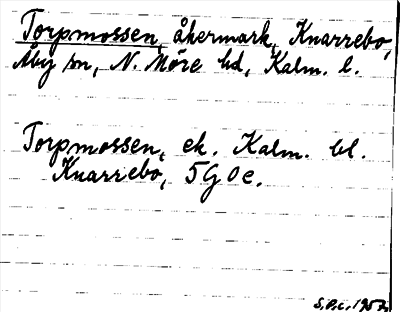 Torpmossen, åkermark, Knarrebo,
Åby sn, N. Möre hd, Kalm. l.
Torpmossen, ek. Kalm. bl.
Knarrebo, 5G0e.
S.P.c. 1957.